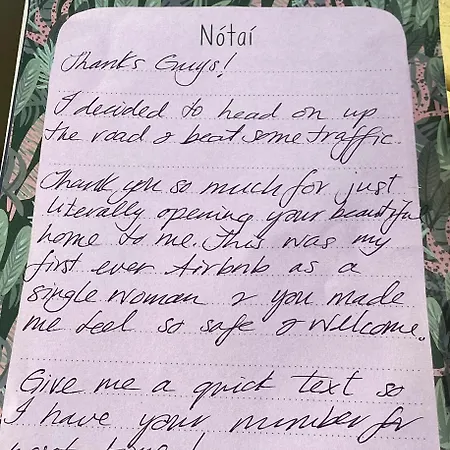 Nótaí
Thanks Guys!
I decided to head on up
the road & beat some traffic.
Thank you so much for just
literally opening your beautiful
home to me. This was my
first ever Airbnb as a
single woman & you made
me feel so safe & welcome.
Give me a quick text so
I have your number for
next time!